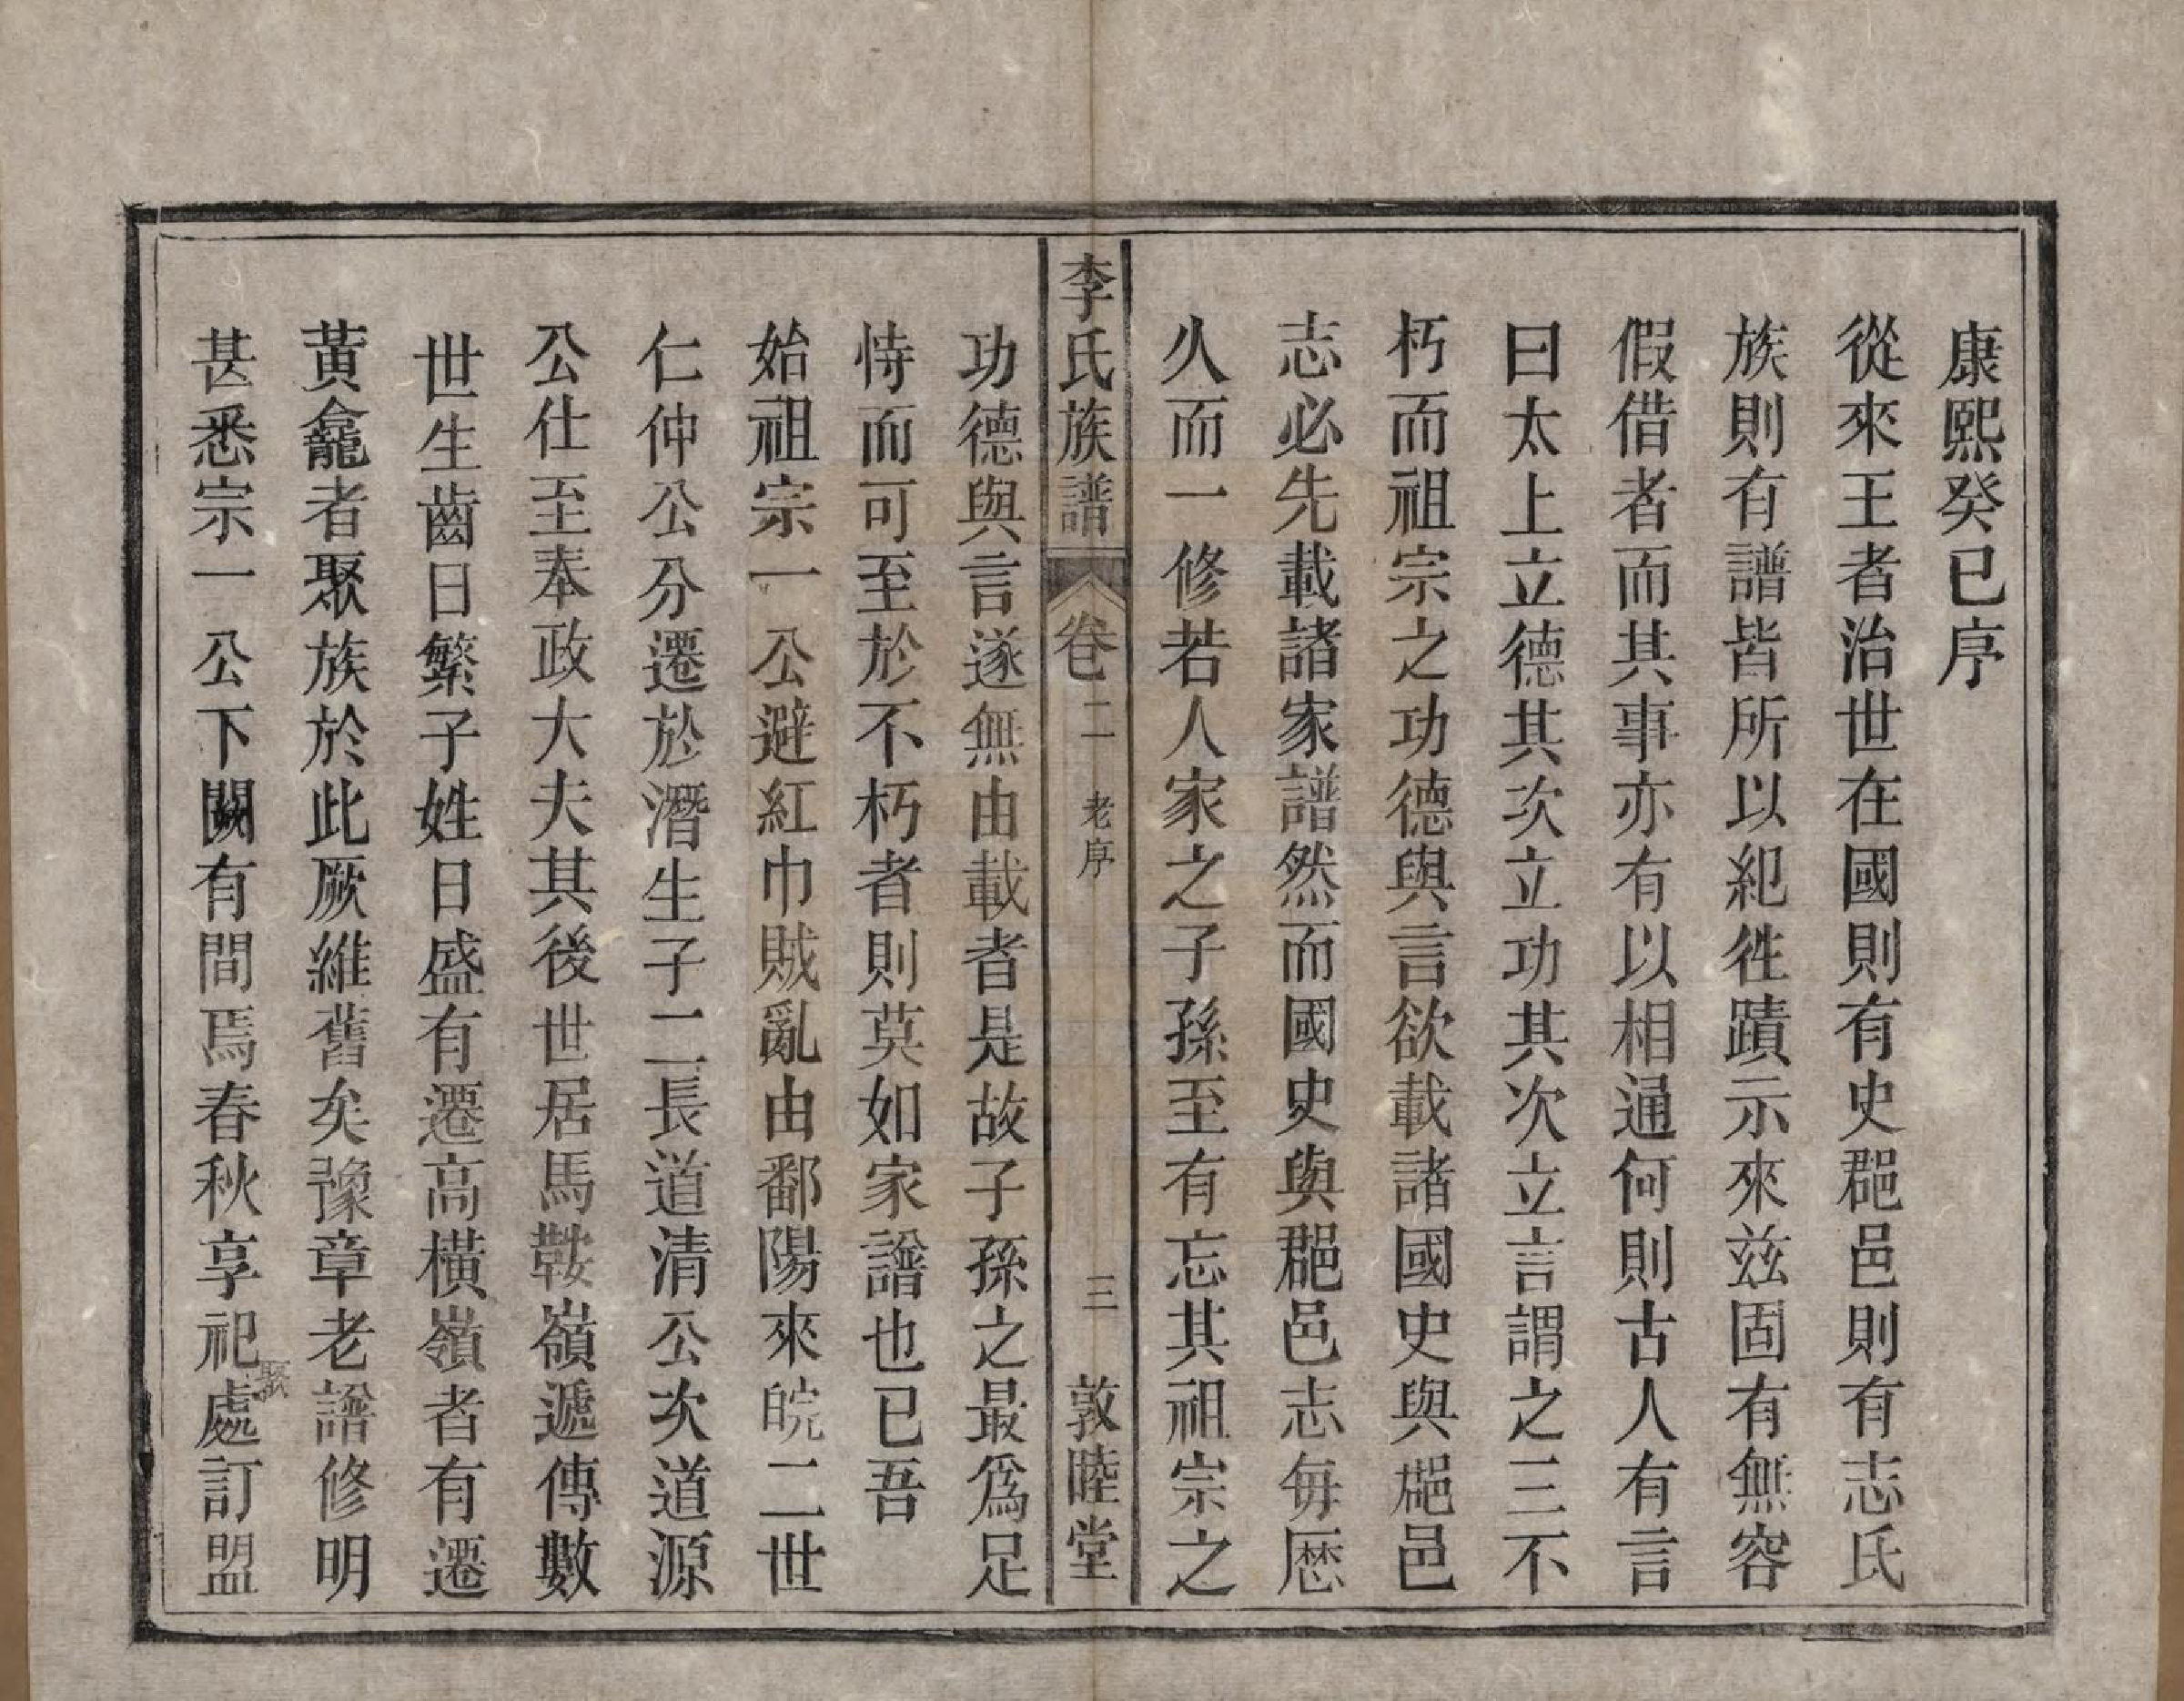 康熙癸巳序
從來王者治世在國則有史郡邑則有志氏
族則有譜皆所以紀徃蹟示來兹固有無容
假借者而其事亦有以相通何則古人有言
曰太上立德其次立功其次立言謂之三不
朽而祖宗之功德與言欲載諸國史與郡邑
志必先載諸家譜然而國史與郡邑志每歴
久而一修若人家之子孫至有忘其祖宗之
李氏族譜 卷二 老序 三 敦睦堂
功德與言遂無由載者是故子孫之最爲足
恃而可至於不朽者則莫如家譜也已吾
始祖宗一公避紅巾賊亂由鄱陽來皖二世
仁仲公分遷於潛生子二長道清公次道源
公仕至奉政大夫其後世居馬鞍嶺遞傳數
世生齒日繁子姓日盛有遷高橫嶺者有遷
黃龕者聚族於此厥維舊矣豫章老譜修明
甚悉宗一公下闕有間焉春秋享祀處訂盟
聚